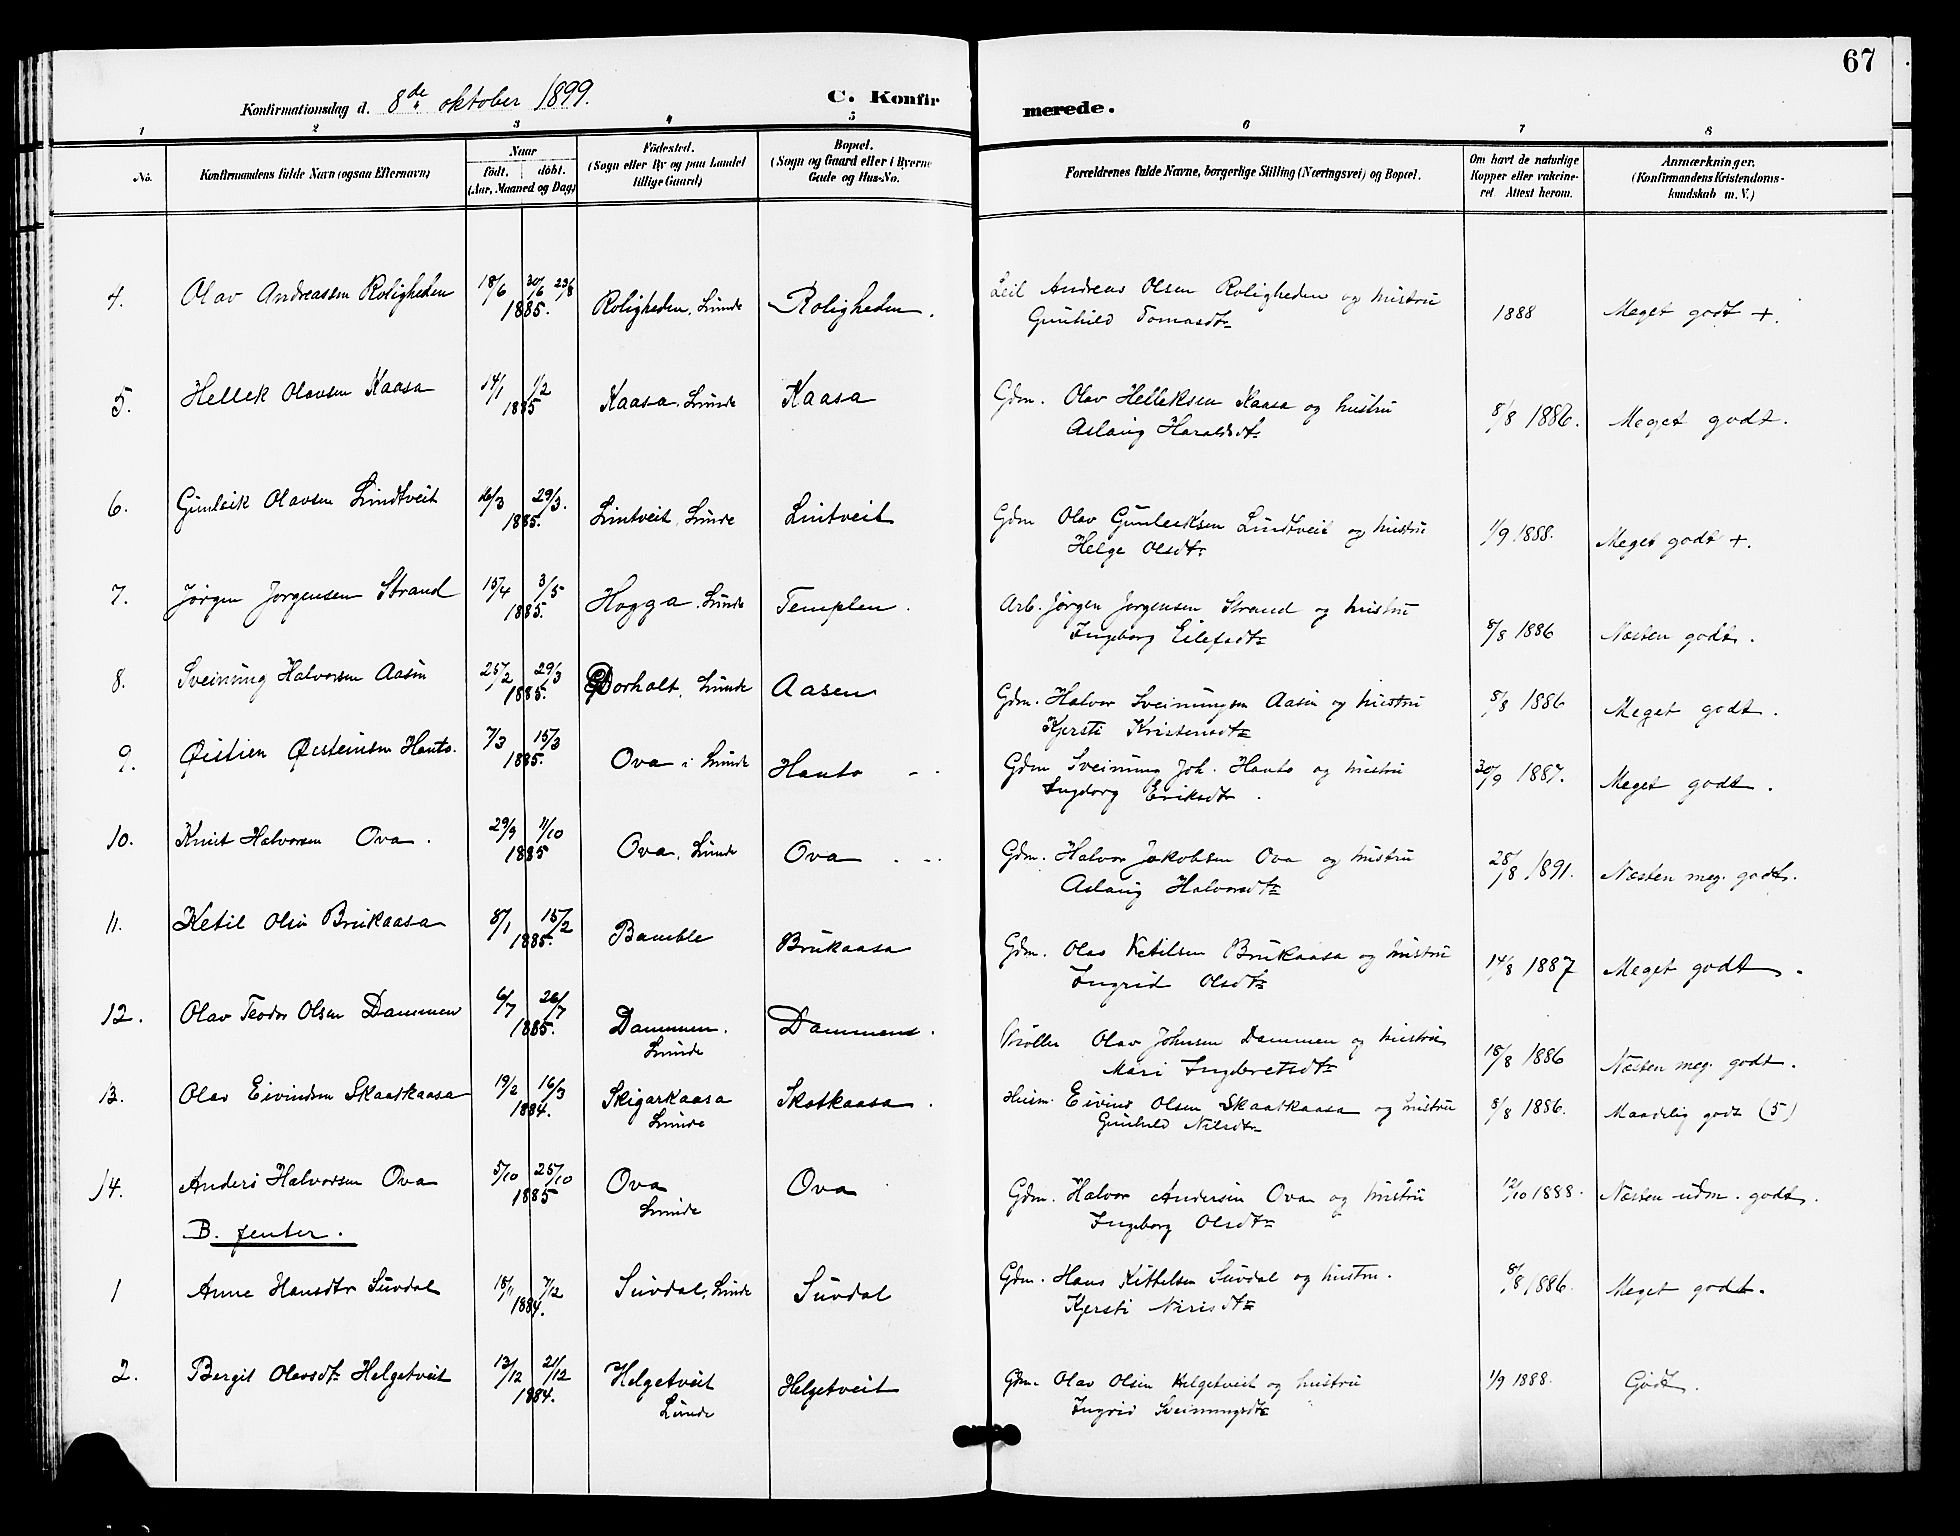 67
Konfirmationsdag d. 8de oktober 1899.
C. Konfirmerede.
1 2 3 4 5 6 7 8
No.
Konfirmandens fulde Navn (ogsaa Efternavn)
Naar
født. døbt.
(Aar, Maaned og Dag)
Fødested.
(Sogn eller By og paa Landet
tillige Gaard)
Bopæl.
(Sogn og Gaard eller i Byerne
Gade og Hus-No.
Forældrenes fulde Navne, borgerlige Stilling (Næringsvei) og Bopæl.
Om havt de naturlige
Kopper eller vakcine-
ret Attest herom.
Anmærkninger,
(Konfirmandens Kristendoms-
kundskab m. V.)
4. Olav Andreassen Roligheden 18/6 30/6 23/8 1885. Roligheden, Lunde Roligheden. Leil Andreas Olsen Roligheden og hustru 1888 Meget godt +.
Gunhild Tomasdtr
5. Hellek Olavsen Kaasa 14/1 1/2 1885 Kaasa, Lunde Kaasa Gdm. Olav Helleksen Kaasa og hustru 8/8 1886. Meget godt.
Aslaug Haraldsdtr
6. Gunleik Olavsen Lindtveit 16/3 29/3. 1885. Lintveit, Lunde Lintveit Gdm Olav Gunleiksen Lindtveit og hustru 1/9 1888. Meget godt +.
Helge Olsdtr
7. Jørgen Jørgensen Strand 15/4 3/5 1885. Hogga, Lunde Templen. Arb. Jørgen Jørgensen Strand og hustru 8/8 1886 Næsten godt.
Ingeborg Eilefsdtr
8. Sveinung Halvorsen Aasen 25/2 29/3 1885. Dorholt, Lunde Aasen Gdm. Halvor Sveinungsen Aasen og hustru 8/8 1886 Meget godt.
Kjersti Kristensdtr
9. Øistien Øisteinsen Hauto. 7/3 15/3 1885. Ova i Lunde Hauto Gdm Sveinung Joh. Hauto og hustru 30/9 1887. Meget godt.
Ingborg Eriksdtr.
10. Knut Halvorsen Ova. 29/9 11/10 1885 Ova, Lunde Ova Gdm. Halvor Jakobsen Ova og hustru 28/8 1891. Næsten meg. godt.
Aslaug Halvorsdtr
11. Ketil Olsen Brukaasa 8/1 15/2 1885. Bamble Brukaasa Gdm. Olav Ketilsen Brukaasa og hustru 14/8 1887 Meget godt.
Ingrid Olsdtr
12. Olav Teodor Olsen Dammen 6/7 26/7 1885. Dammen. Dammen. Møller Olav Johnsen Dammen og hustru 18/8 1886 Næsten meg. godt.
Lunde Mari Ingebretsdtr
13. Olav Eivindsen Skaatkaasa 19/2 16/3 1884. Skigarkaasa Skotkaasa. Husm. Eivind Olsen Skaatkaasa og hustru 8/8 1886. Maadelig godt (5)
Lunde Gunhild Nilsdtr
14. Anders Halvorsen Ova 5/10 25/10 1885 Ova Ova Gdm. Halvor Andersen Ova og hustru 12/10 1888. Næsten udm. godt.
Lunde Ingeborg Olsdtr
B. jenter.
1 Anne Hansdtr Suvdal 15/11 7/12 1884. Suvdal, Lunde Suvdal Gdm. Hans Kittelsen Suvdal og hustru. 8/8 1886. Meget godt.
Kjersti
2. Bergit Olavsdtr Helgetveit 13/12 21/12 1884. Helgetveit Helgetveit Gdm. Olav Olsen Helgetveit og hustru 1/9 1888. Godt.
Lunde Ingrid Sveinungsdtr